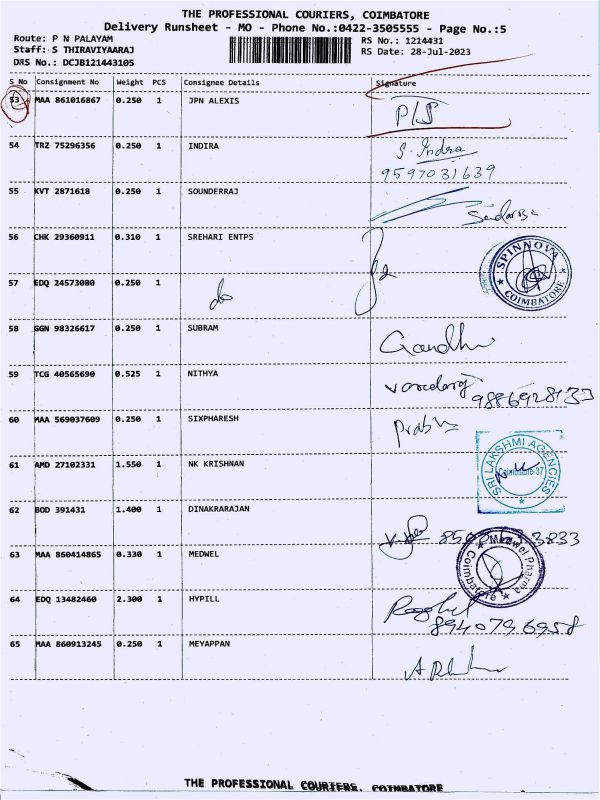 THE PROFESSIONAL COURIERS, COIMBATORE
Delivery Runsheet - MO - Phone No.:0422-3505555 - Page No.:5
Route: P N PALAYAM RS No.: 1214431
Staff: S THIRAVIYAARAJ RS Date: 28-Jul-2023
DRS No.: DCJB121443105
S No Consignment No Weight PCS Consignee Details Signature
53 MAA 861016867 0.250 1 JPN ALEXIS P/S
54 TRZ 75296356 0.250 1 INDIRA S. Indra
9597031639
55 KVT 2871618 0.250 1 SOUNDERRAJ
56 CHK 29360911 0.310 1 SREHARI ENTPS
SPINNOVA COIMBATORE
57 EDQ 24573080 0.250 1 do
58 GGN 98326617 0.250 1 SUBRAM Gandhi
59 TCG 40565690 0.525 1 NITHYA varadaraj
9886928133
60 MAA 569037609 0.250 1 SIXPHARESH Prabhu
61 AMD 27102331 1.550 1 NK KRISHNAN
SRI LAKSHMI AGENCIES Coimbatore-37
62 BOD 391431 1.400 1 DINAKRARAJAN
63 MAA 860414865 0.330 1 MEDWEL
Medwel Pharma Coimbatore
64 EDQ 13482460 2.300 1 HYPILL
8940796958
65 MAA 860913245 0.250 1 MEYAPPAN
THE PROFESSIONAL COURIERS, COIMBATORE